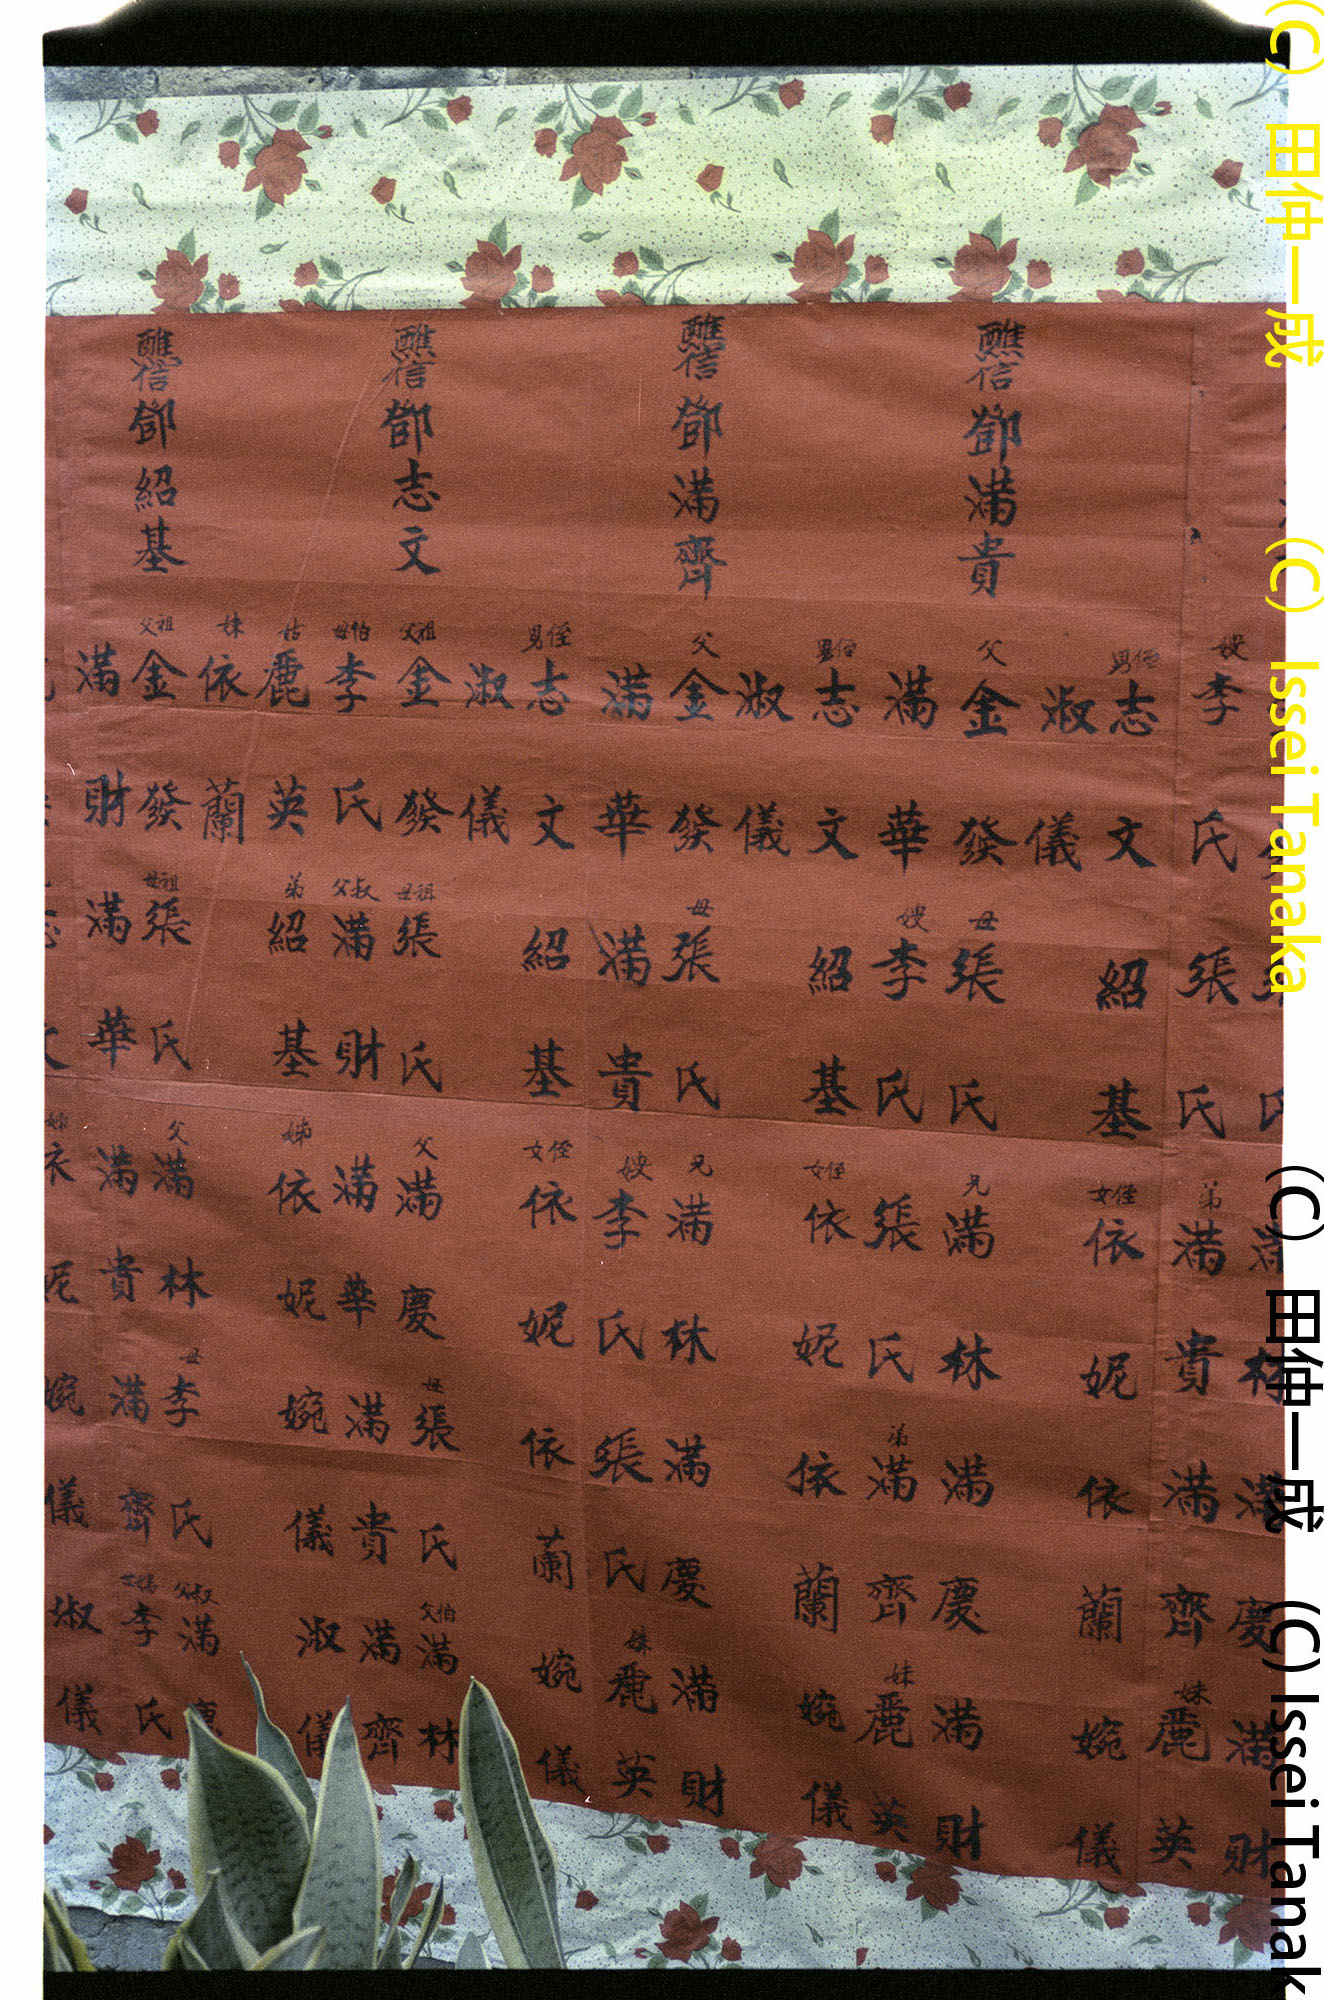 滿林滿慶滿財
嫂李氏張氏弟滿貴滿齊妹麗英
侄男志文紹基侄女依妮依蘭婉儀
淑儀
醮信鄧滿貴
父金發母張氏兄滿林滿慶滿財
滿華嫂李氏張氏弟滿齊妹麗英
侄男志文紹基侄女依妮依蘭婉儀
淑儀
醮信鄧滿齊
父金發母張氏兄滿林滿慶滿財
滿華滿貴嫂李氏張氏妹麗英
侄男志文紹基侄女依妮依蘭婉儀
淑儀
醮信鄧志文
祖父金發祖母張氏父滿慶母張氏伯父滿林
伯母李氏叔父滿財滿華滿貴滿齊
姑麗英弟紹基姊依妮婉儀淑儀
妹依蘭
醮信鄧紹基
祖父金發祖母張氏父滿林母李氏叔父滿慶
滿財滿華滿貴滿齊李氏
依妮婉儀淑儀
(C) 田仲一成 (C) Issei Tanaka
(C) 田仲一成 (C) Issei Tanak